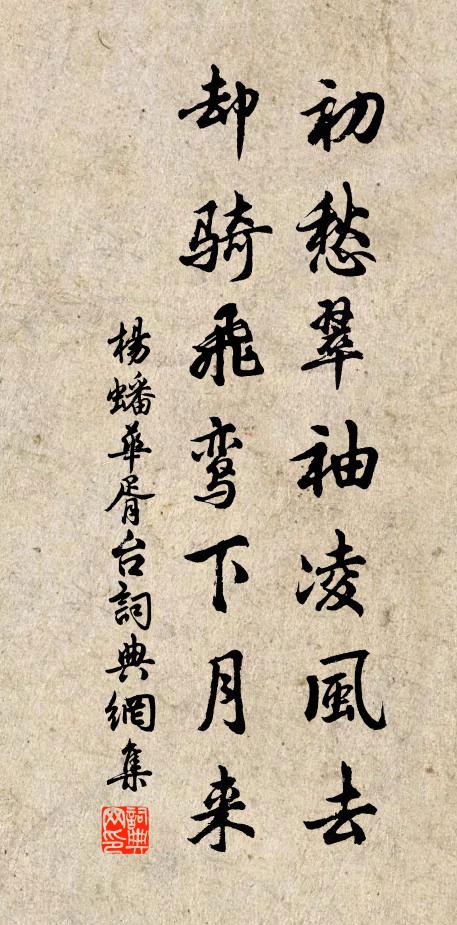 初愁翠袖凌風去
却骑飛鸾下月来
楊蟠華胥台詞典網集
詞典网印